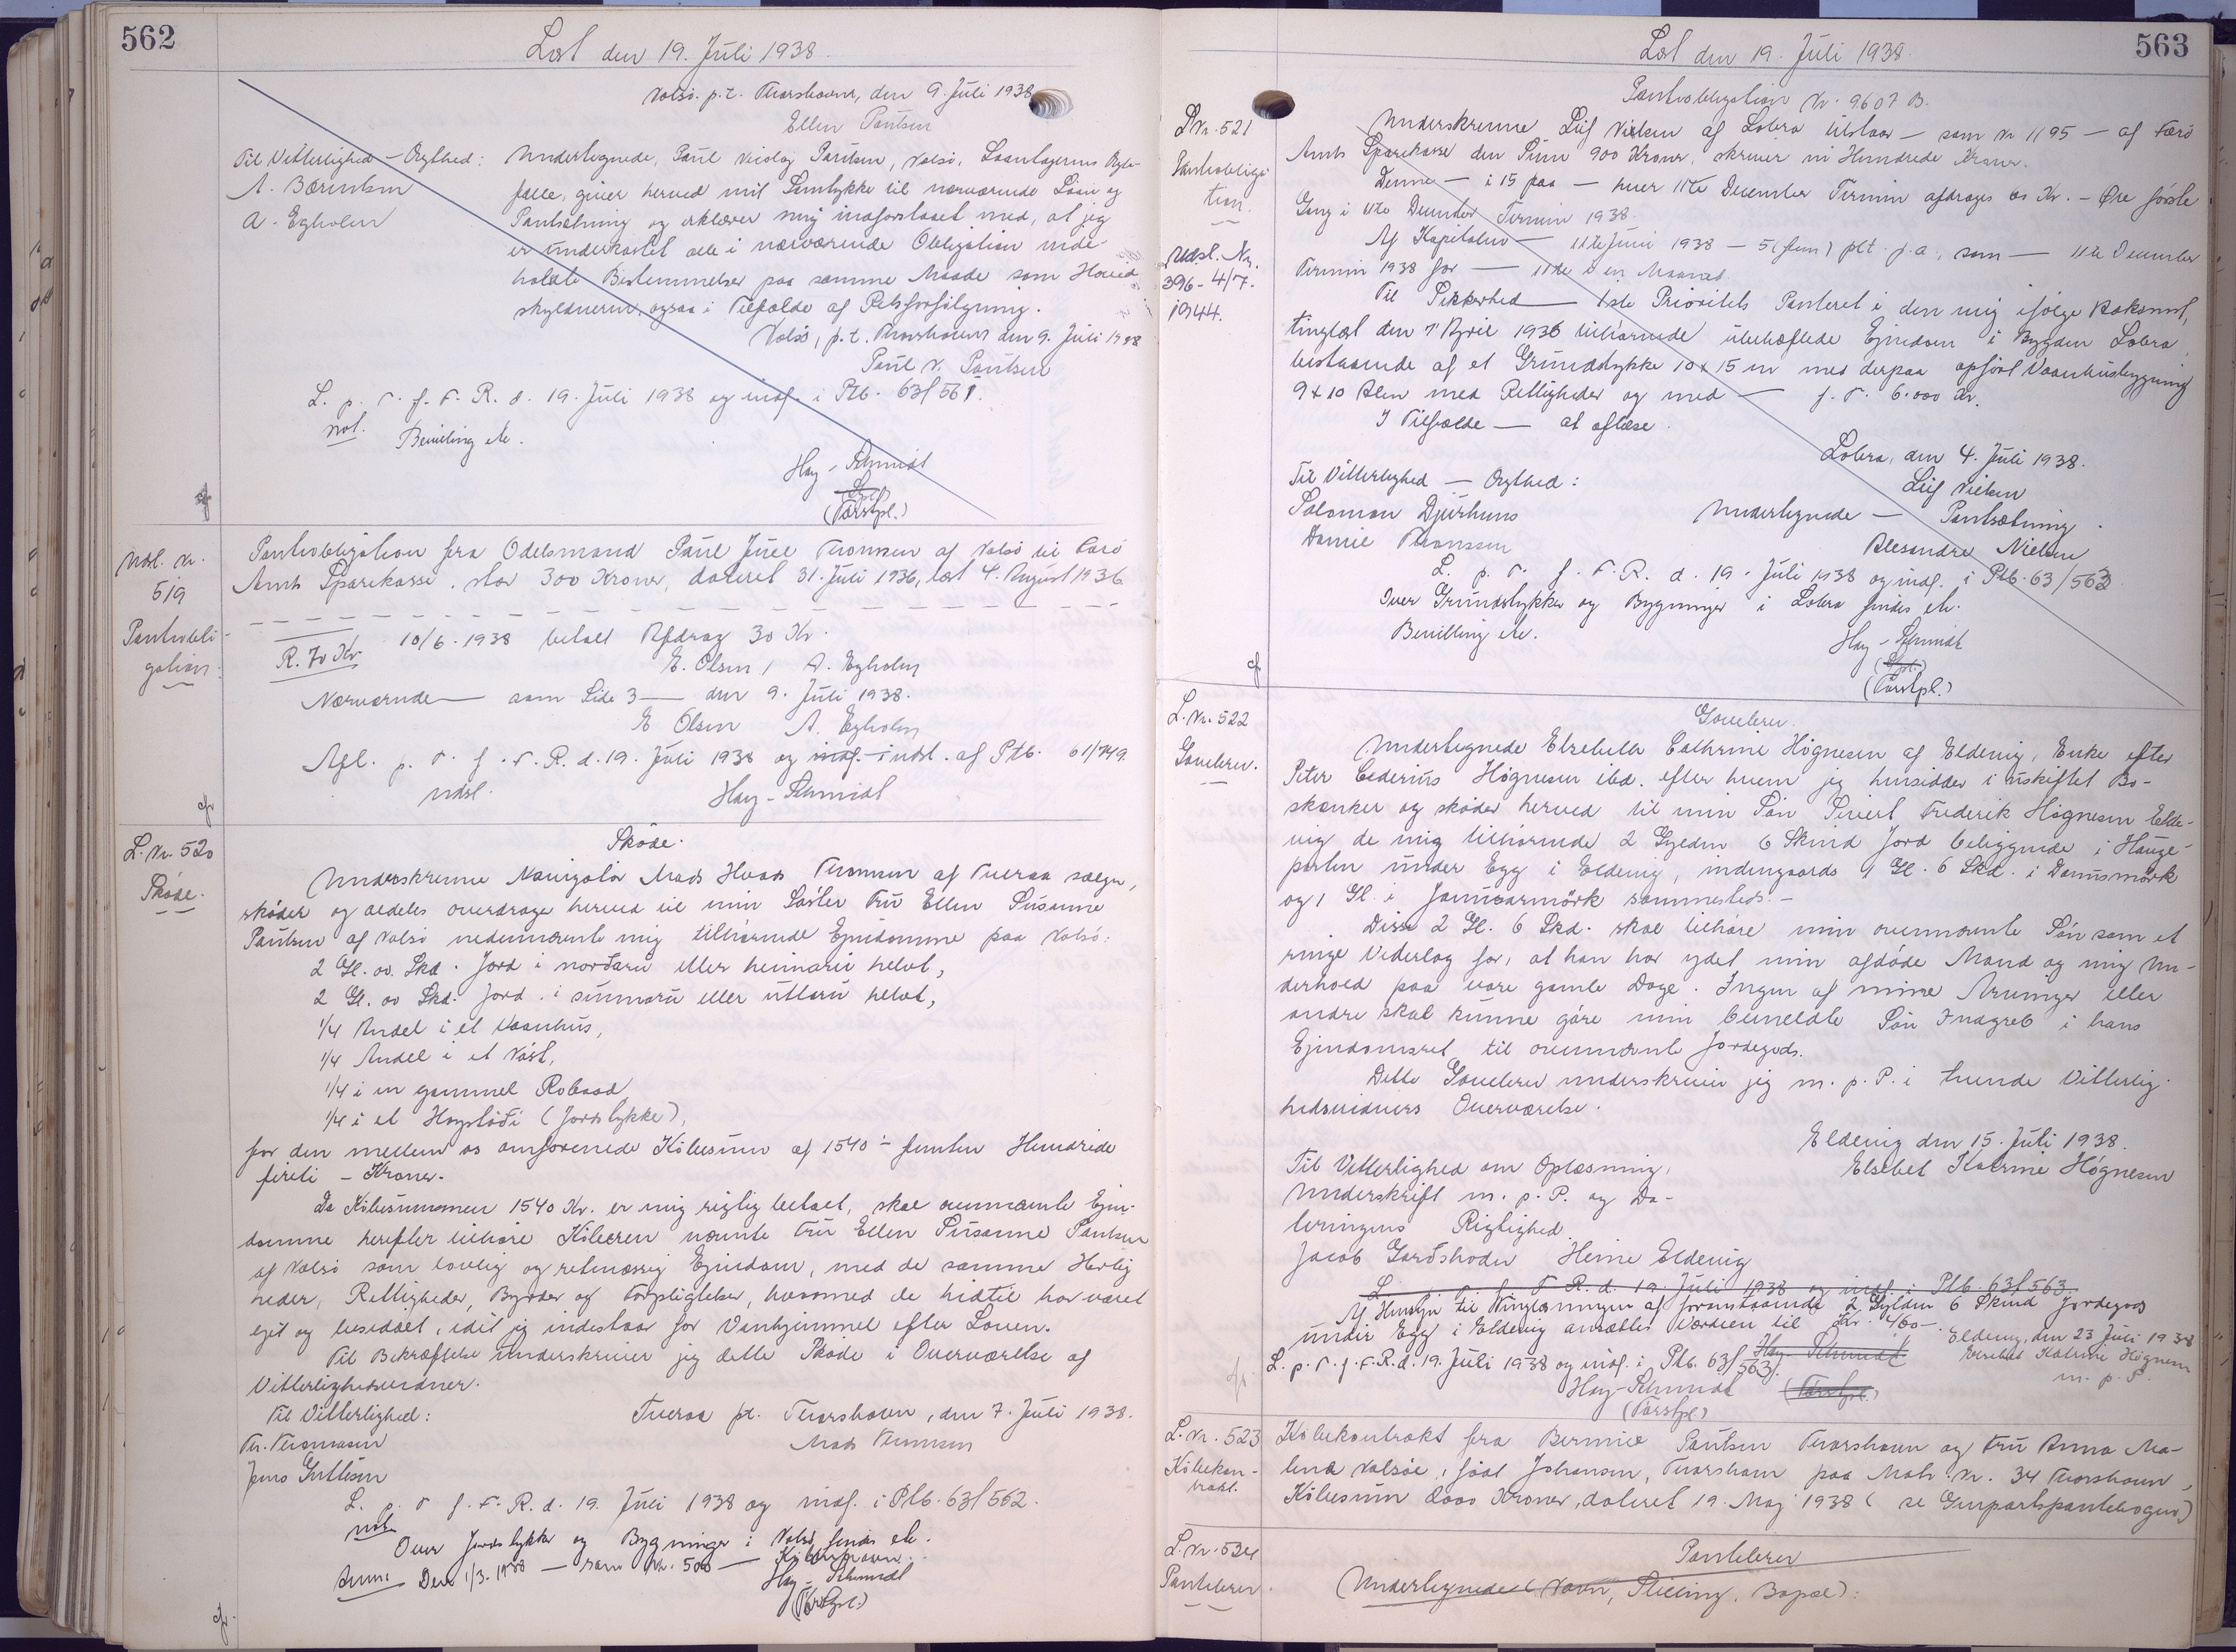 562
Læst den 19. Juli 1938.
Nolsö. p.t. Thorshavn, den 9. Juli 1938
Ellen Poulsen
Til Vitterlighed - Ægthed:
A. Bærentsen
A. Egholm
Undertegnede, Poul Nicolaj Poulsen, Nolsö, Laantagerens Ægte-
fælle, giver herved mit Samtykke til nærværende Laan og
Pantsætning og erklærer mig indforstaaet med, at jeg
er underkastet alle i nærværende Obligation inde-
holdte Bestemmelser paa samme Maade som Hoved
skyldneren, ogsaa i Tilfælde af Retsforfölgning.
Nolsö, p.t. Thorshavn den 9. Juli 1938
Poul N. Poulsen
L. p. T. f. F. R. d. 19. Juli 1938 og indf. i Ptb. 63/561.
not.
Bevilling etc.
Hay-Schmidt
(Torstpl.)
Udsl. Nr.
519
Pantobli-
gation.
Pantobligation fra Odelsmand Poul Juel Thomsen af Nolsö til Færö
Amts Sparekasse, stor 300 Kroner, dateret 31. Juli 1936, læst 4. August 1936
R. 70 Kr. 10/6. 1938 betalt Afdrag 30 Kr.
E. Olsen / A. Egholm
Nærværende — som Side 3 — den 9. Juli 1938.
E Olsen A. Egholm
Afl. p. T. f. F. R. d. 19. Juli 1938 og indf. i udsl. af Ptb. 61/749.
udsl.
Hay-Schmidt
L. Nr. 520
Sköde.
Sköde.
Underskrevne Navigatör Mads Thomsen af Tveraa sælger,
sköder og aldeles overdrager herved til min Söster Fru Ellen Susanne
Poulsen af Nolsö nedennævnte mig tilhörende Ejendomme paa Nolsö:
2 Gl. oo. Skd. Jord i norðaru eller heimaru helvt,
2 Gl. oo Skd. Jord. i sunnaru eller uttaru helvt,
1/4 Andel i et Vaanhus,
1/4 Andel i et Nöst,
1/4 i en gammel Robaad,
1/4 i et Hoystöði (Jordstykke),
for den mellem os omforenede Köbesum af 1540 ÷ femten Hundrede
fireti - Kroner.
Da Köbesummen 1540 Kr. er mig rigtig betalt, skal ovennævnte Ejen-
domme herefter tilhöre Köberen nævnte Fru Ellen Susanne Poulsen
af Nolsö som lovlig og retmæssig Ejendom, med de samme Herlig
heder, Rettigheder, Byrder og Forpligtelser, hvormed de hidtil har været
ejet og besiddet, idet jeg indestaar for Vanhjemmel efter Loven.
Til Bekræftelse underskriver jeg dette Sköde i Overværelse af
Vitterlighedsvidner.
Til Vitterlighed:
Tveraa pt. Thorshavn, den 7. Juli 1938.
Th. Thomasen
Mads Thomsen
Jens Guttesen
L. p. T f. F. R. d. 19. Juli 1938 og indf. i Ptb. 63/562.
not.
Over Jordstykker og Bygninger i Nolsö findes etc.
Anm. Den 1/3. 1938 — som Nr. 500 — Köbenhavn.
Hay-Schmidt
(Torstpl.)
563
Læst den 19. Juli 1938.
L Nr. 521
Pantobliga
tion.
Udsl. Nr.
396 - 4/7.
1944.
Pantobligation Nr. 9607 B.
Underskrevne Leif Nielsen af Lobra tilstaar — som Nr 1195 — af Færö
Amts Sparekasse den Sum 900 Kroner, skriver ni Hundrede Kroner.
Denne — i 15 paa — hver 11te December Termin afdrages os Kr. - Öre förste
Gang i 11te December Termin 1938.
Af Kapitalen — 11te Juni 1938 — 5 (fem) pct. p.a., som — 11te December
Termin 1938 for — 11te i en Maaned.
Til Sikkerhed — 1ste Prioritets Panteret i den mig ifölge Adkomst,
tinglæst den 7' April 1936 tilhörende ubehæftede Ejendom i Bygden Lobra,
bestaaende af et Grundstykke 10 x 15 m med derpaa opfört Vaanhusbygning
9 x 10 Alen med Rettigheder og med — f. T. 6.000 Kr.
I Tilfælde — at aflæse.
Lobra, den 4. Juli 1938.
Til Vitterlighed — Ægthed:
Leif Nielsen
Salomon Djurhuus
Undertegnede — Pantsætning.
Daniel Thomsen
Alexandra Nielsen
L. p. T. f. F. R. d. 19. Juli 1938 og indf. i Ptb. 63/563
Over Grundstykker og Bygninger i Lobra findes etc.
Bevilling etc.
Hay-Schmidt
(Torstpl.)
L. Nr. 522
Gavebrev.
Gavebrev.
Undertegnede Elsebeth Cathrine Högnesen af Eldevig, Enke efter
Peter Cederius Högnesen ibd. efter hvem jeg hensidder i uskiftet Bo-
skænker og sköder herved til min Sön Sivert Frederik Högnesen Elde-
vig de mig tilhörende 2 Gylden 6 Skind Jord beliggende i Hauge-
parten under Egg i Eldevig, indengaards 1 Gl. 6 Skd. i Danusmörk
og 1 Gl. i Januarmörk sammesteds. -
Disse 2 Gl. 6 Skd. skal tilhöre min ovennævnte Sön som et
ringe Vederlag for, at han har ydet min afdöde Mand og mig Un-
derhold paa vore gamle Dage. Ingen af mine Arvinger eller
andre skal kunne göre min bemeldte Sön Indgreb i hans
Ejendomsret til ovennævnte Jordegods.
Dette Gavebrev underskriver jeg m. p. P. i tvende Vitterlig-
hedsvidners Overværelse.
Eldevig den 15. Juli 1938.
Til Vitterlighed om Oplæsning,
Elsebet Katrine Högnesen
Underskrift m. p. P. og Da-
teringens Rigtighed.
Jacob Garðshodn Heine Eldevig
L. p. T. f. F. R. d. 19. Juli 1938 og indf. i Ptb. 63/563.
Af Hensyn til Tinglæsningen af foranstaaende 2 Gylden 6 Skind Jordegods
under Egg i Eldevig ansættes Værdien til Kr. 460-.
Eldevig, den 23 Juli 1938
Elsebet Katrine Högnesen
m. p. P.
L. p. T. f. F. R. d. 19. Juli 1938 og indf. i Ptb. 63/563.
Hay-Schmidt
Hay-Schmidt
(Torstpl.)
(Torstpl.)
L. Nr. 523
Köbekon-
trakt.
Köbekontrakt fra Poulsen Thorshavn og Fru Anna Ma-
lena Nolsöe, föd Johansen, Thorshavn paa Matr. Nr. 34 Thorshavn,
Köbesum 2000 Kroner, dateret 19. Maj 1938 (se Genpartspantebogen)
L. Nr. 524
Pantebrev.
Pantebrev
Undertegnede (Navn, Stilling, Bopæl):